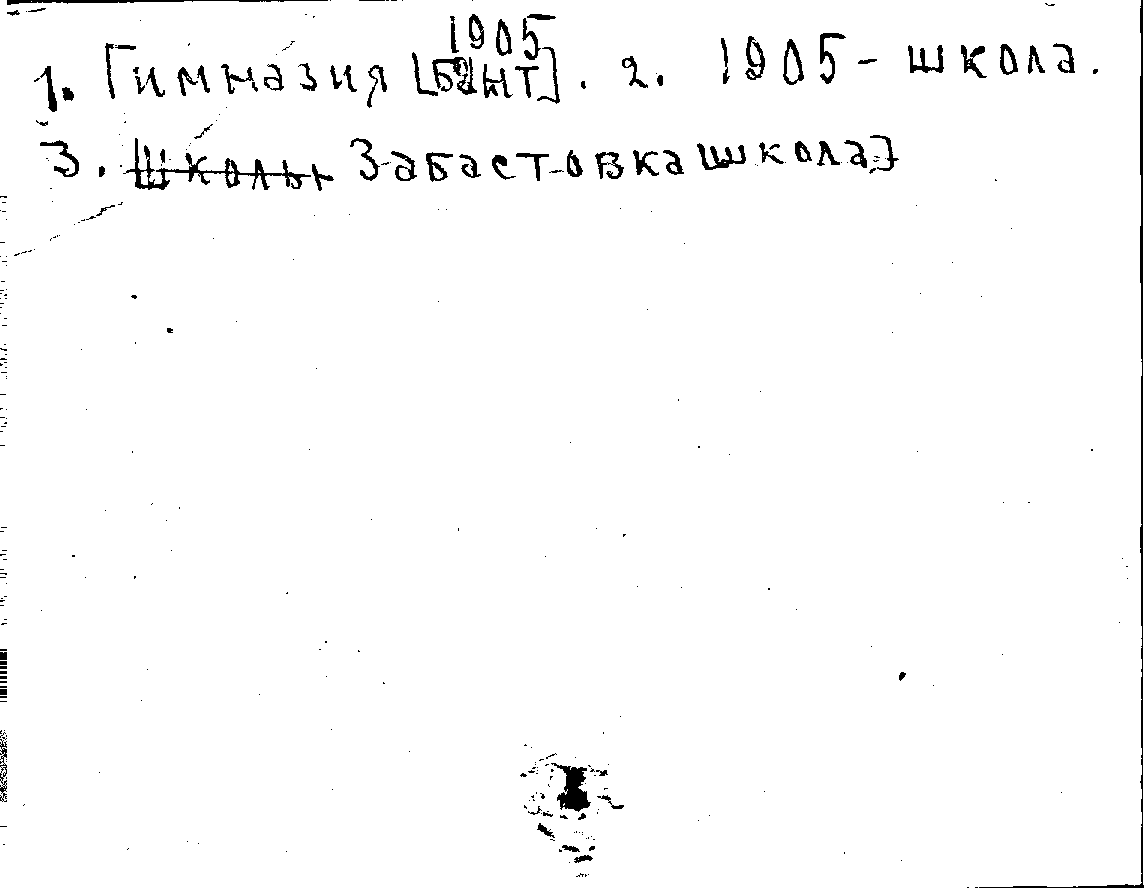 1. Гимназия [Бунт 1905]. 2. 1905 - школа.
3. Школы Забастовка школа]